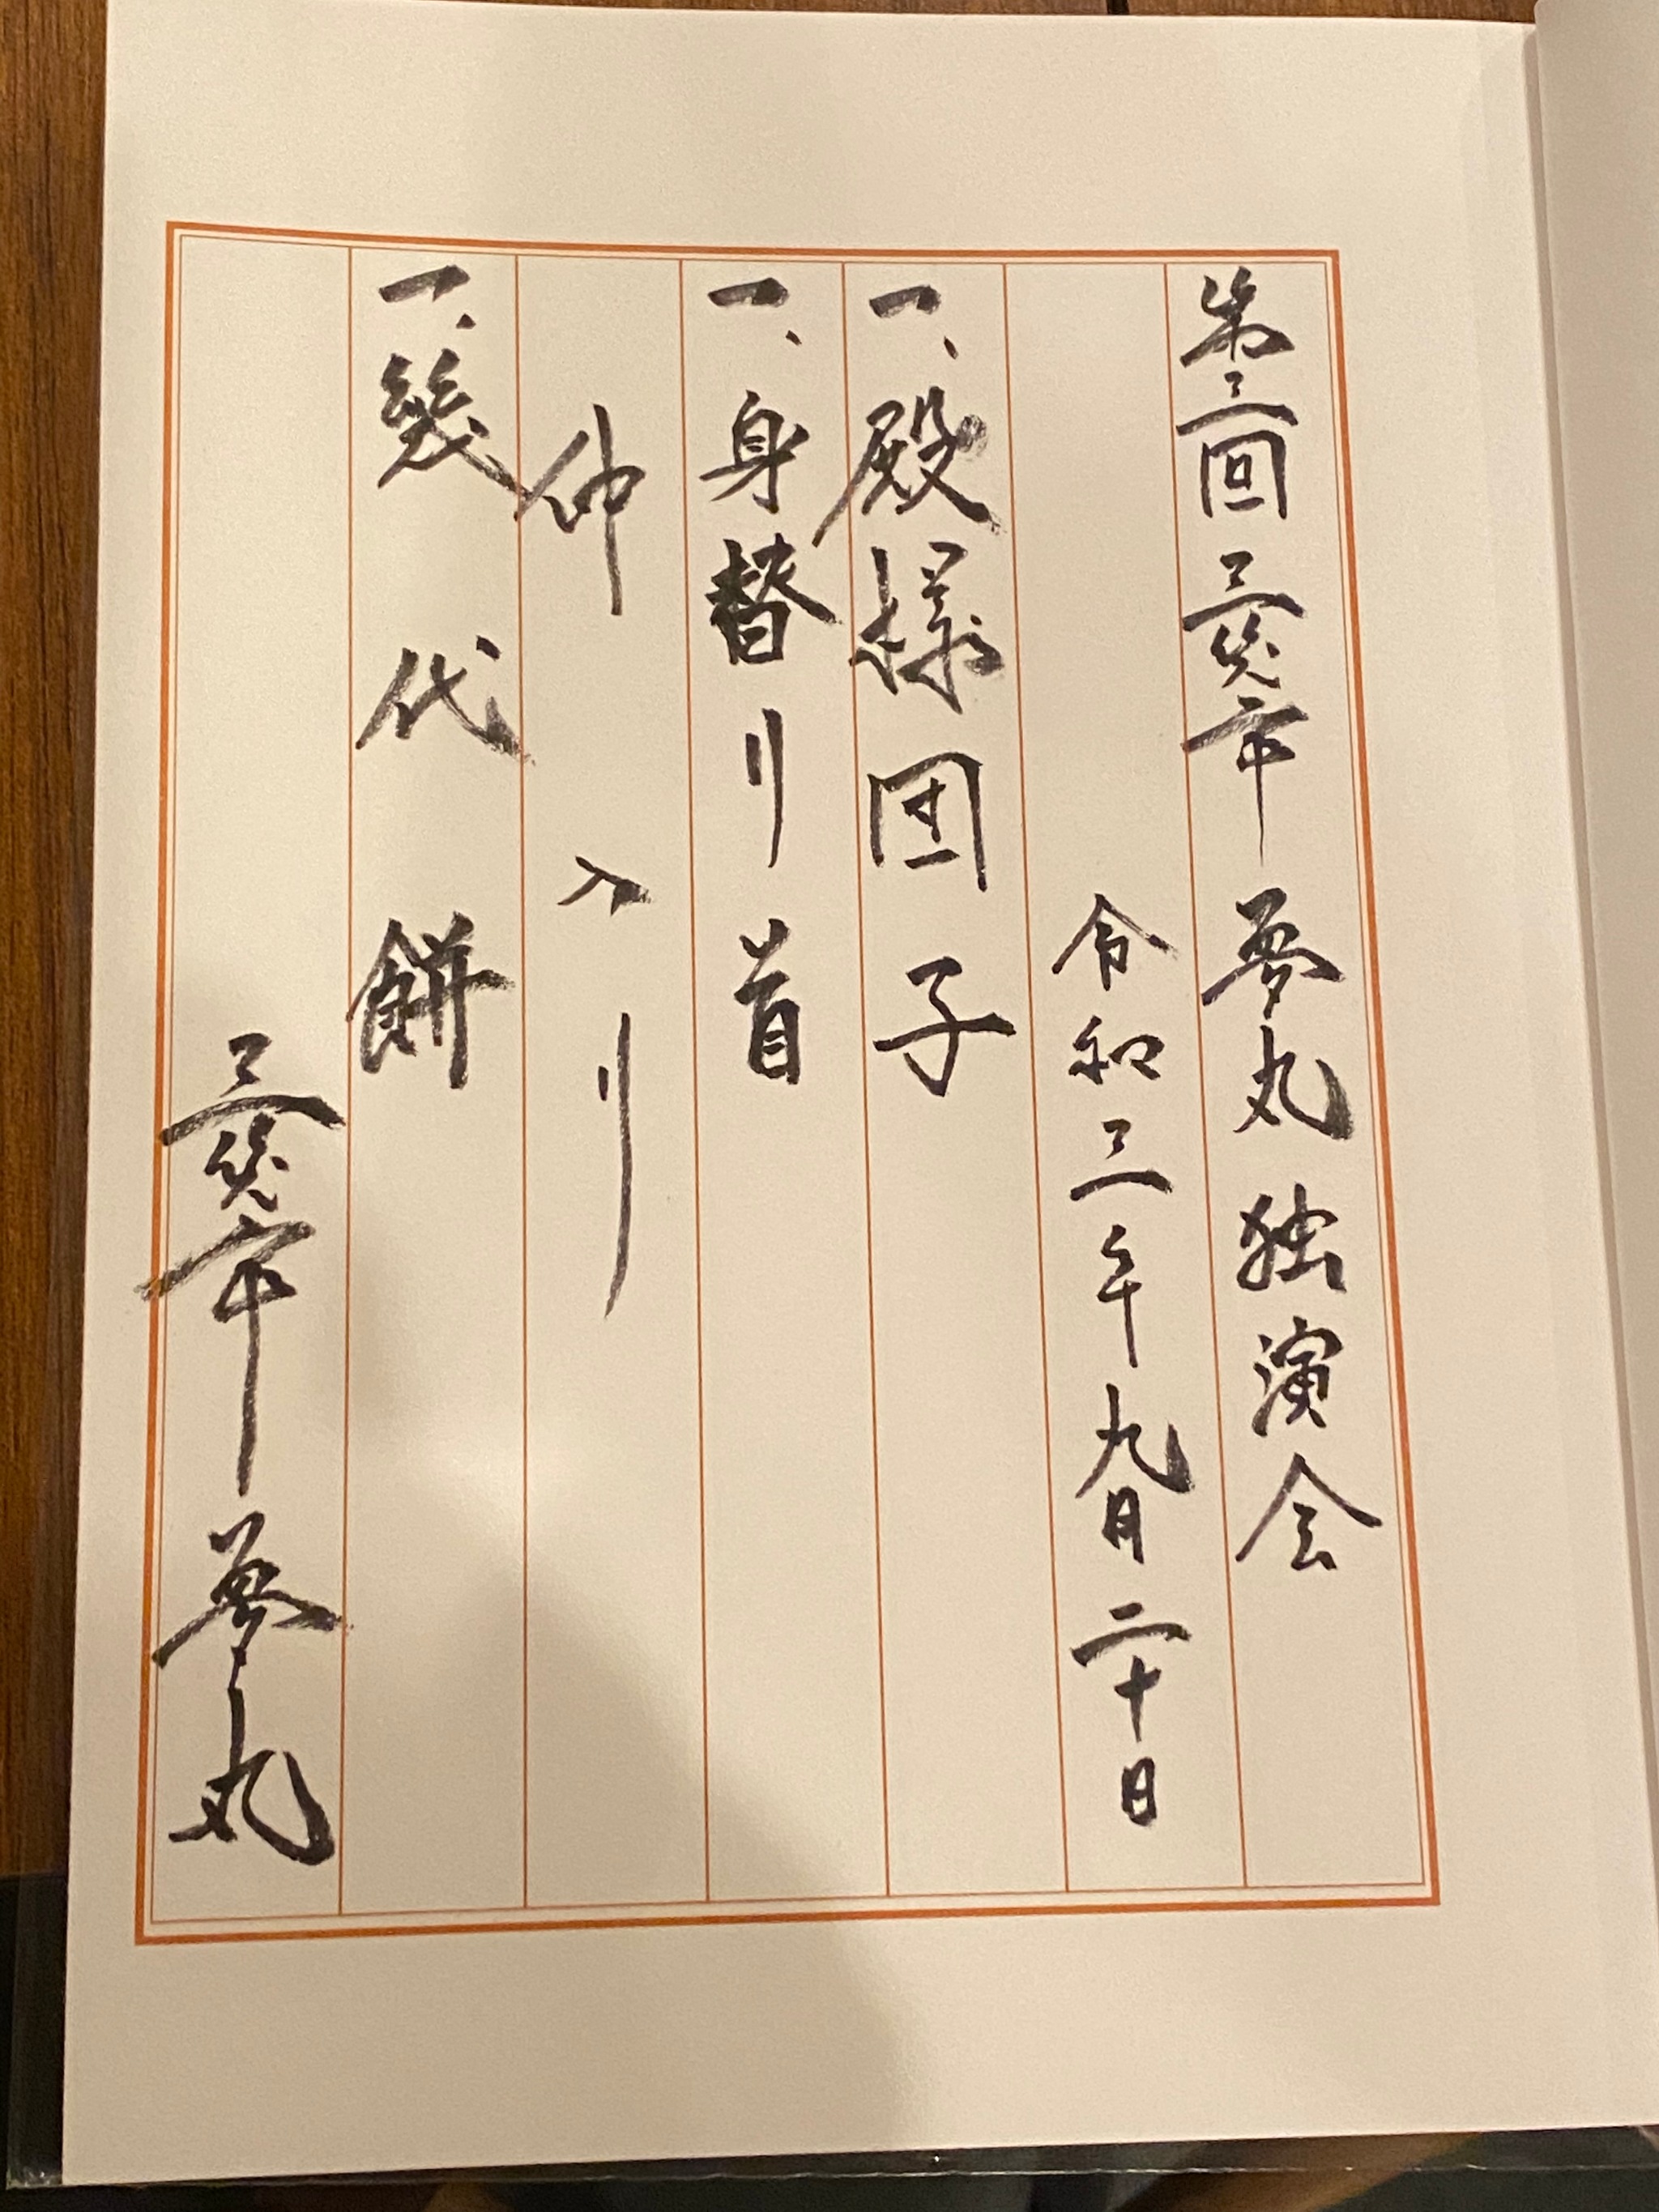 第三回 三笑亭 夢丸 独演会
令和三年九月二十日
一、殿様団子
一、身替り首
仲入り
一、幾代餅
三笑亭夢丸